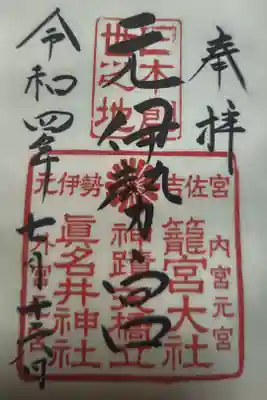 奉拝
日本創
世之地
元伊勢宮
令和四年七月
元伊勢 吉佐宮
内宮元宮
籠宮大社
神蹟天橋立
眞名井神社
外宮元宮